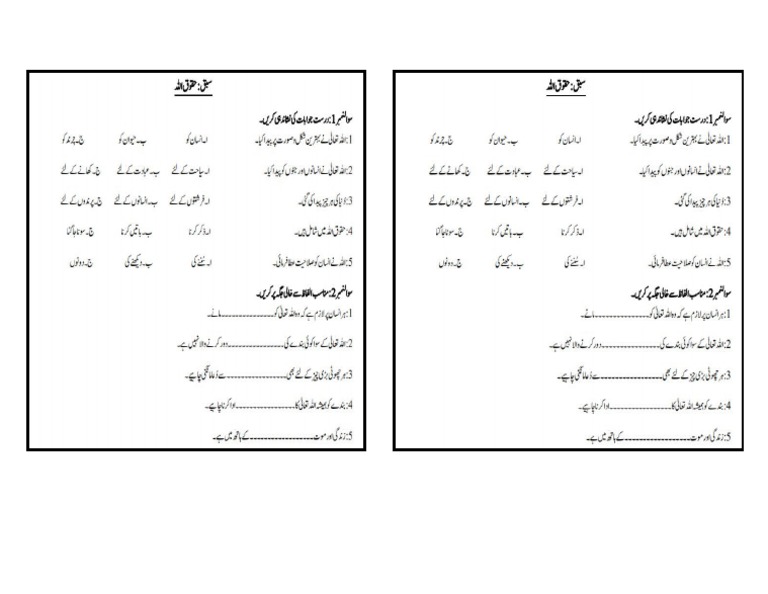 سبق: حقوق اللہ
سوال نمبر 1: درست جوابات کی نشاندہی کریں۔
1: اللہ تعالیٰ نے بہترین شکل و صورت پر پیدا کیا۔ ا۔ انسان کو ب۔ حیوان کو ج۔ چرند کو
2: اللہ تعالیٰ نے انسانوں اور جنوں کو پیدا کیا۔ ا۔ سیاحت کے لئے ب۔ عبادت کے لئے ج۔ کھانے کے لئے
3: دُنیا کی ہر چیز پیدا کی گئی۔ ا۔ فرشتوں کے لئے ب۔ انسانوں کے لئے ج۔ پرندوں کے لئے
4: حقوق اللہ میں شامل ہیں۔ ا۔ ذکر کرنا ب۔ باتیں کرنا ج۔ سونا جاگنا
5: اللہ نے انسان کو صلاحیت عطا فرمائی۔ ا۔ سُننے کی ب۔ دیکھنے کی ج۔ دونوں
سوال نمبر 2: مناسب الفاظ سے خالی جگہ پر کریں۔
1: ہر انسان پر لازم ہے کہ وہ اللہ تعالیٰ کو ---------------- مانے۔
2: اللہ تعالیٰ کے سوا کوئی بندے کی ---------------- دور کرنے والا نہیں ہے۔
3: ہر چھوٹی بڑی چیز کے لئے بھی ---------------- سے دُعا مانگنی چاہیے۔
4: بندے کو ہمیشہ اللہ تعالیٰ کا ---------------- ادا کرنا چاہیے۔
5: زندگی اور موت ---------------- کے ہاتھ میں ہے۔
سبق: حقوق اللہ
سوال نمبر 1: درست جوابات کی نشاندہی کریں۔
1: اللہ تعالیٰ نے بہترین شکل و صورت پر پیدا کیا۔ ا۔ انسان کو ب۔ حیوان کو ج۔ چرند کو
2: اللہ تعالیٰ نے انسانوں اور جنوں کو پیدا کیا۔ ا۔ سیاحت کے لئے ب۔ عبادت کے لئے ج۔ کھانے کے لئے
3: دُنیا کی ہر چیز پیدا کی گئی۔ ا۔ فرشتوں کے لئے ب۔ انسانوں کے لئے ج۔ پرندوں کے لئے
4: حقوق اللہ میں شامل ہیں۔ ا۔ ذکر کرنا ب۔ باتیں کرنا ج۔ سونا جاگنا
5: اللہ نے انسان کو صلاحیت عطا فرمائی۔ ا۔ سُننے کی ب۔ دیکھنے کی ج۔ دونوں
سوال نمبر 2: مناسب الفاظ سے خالی جگہ پر کریں۔
1: ہر انسان پر لازم ہے کہ وہ اللہ تعالیٰ کو ---------------- مانے۔
2: اللہ تعالیٰ کے سوا کوئی بندے کی ---------------- دور کرنے والا نہیں ہے۔
3: ہر چھوٹی بڑی چیز کے لئے بھی ---------------- سے دُعا مانگنی چاہیے۔
4: بندے کو ہمیشہ اللہ تعالیٰ کا ---------------- ادا کرنا چاہیے۔
5: زندگی اور موت ---------------- کے ہاتھ میں ہے۔